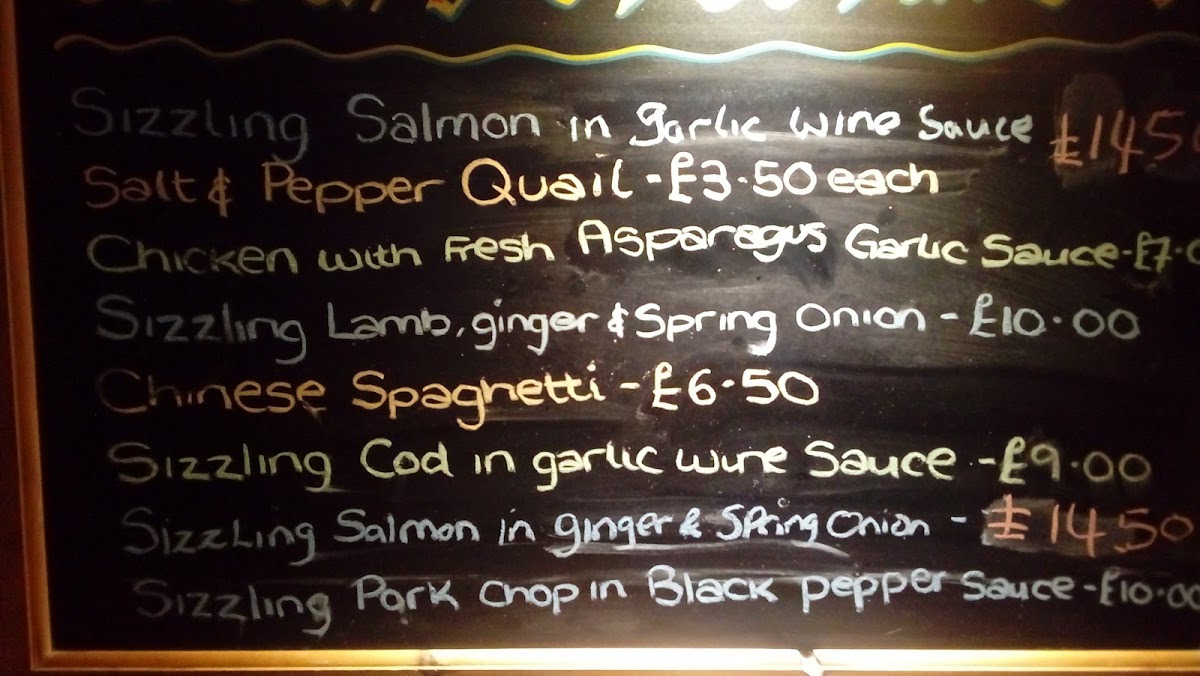 Sizzling Salmon in garlic wine Sauce £1450
Salt & Pepper Quail - £3.50 each
Chicken with Fresh Asparagus Garlic Sauce - £7.
Sizzling Lamb, ginger & Spring Onion - £10.00
Chinese Spaghetti - £6.50
Sizzling Cod in garlic wine Sauce - £9.00
Sizzling Salmon in ginger & Spring Onion - £1450
Sizzling Pork Chop in Black pepper Sauce - £10.00